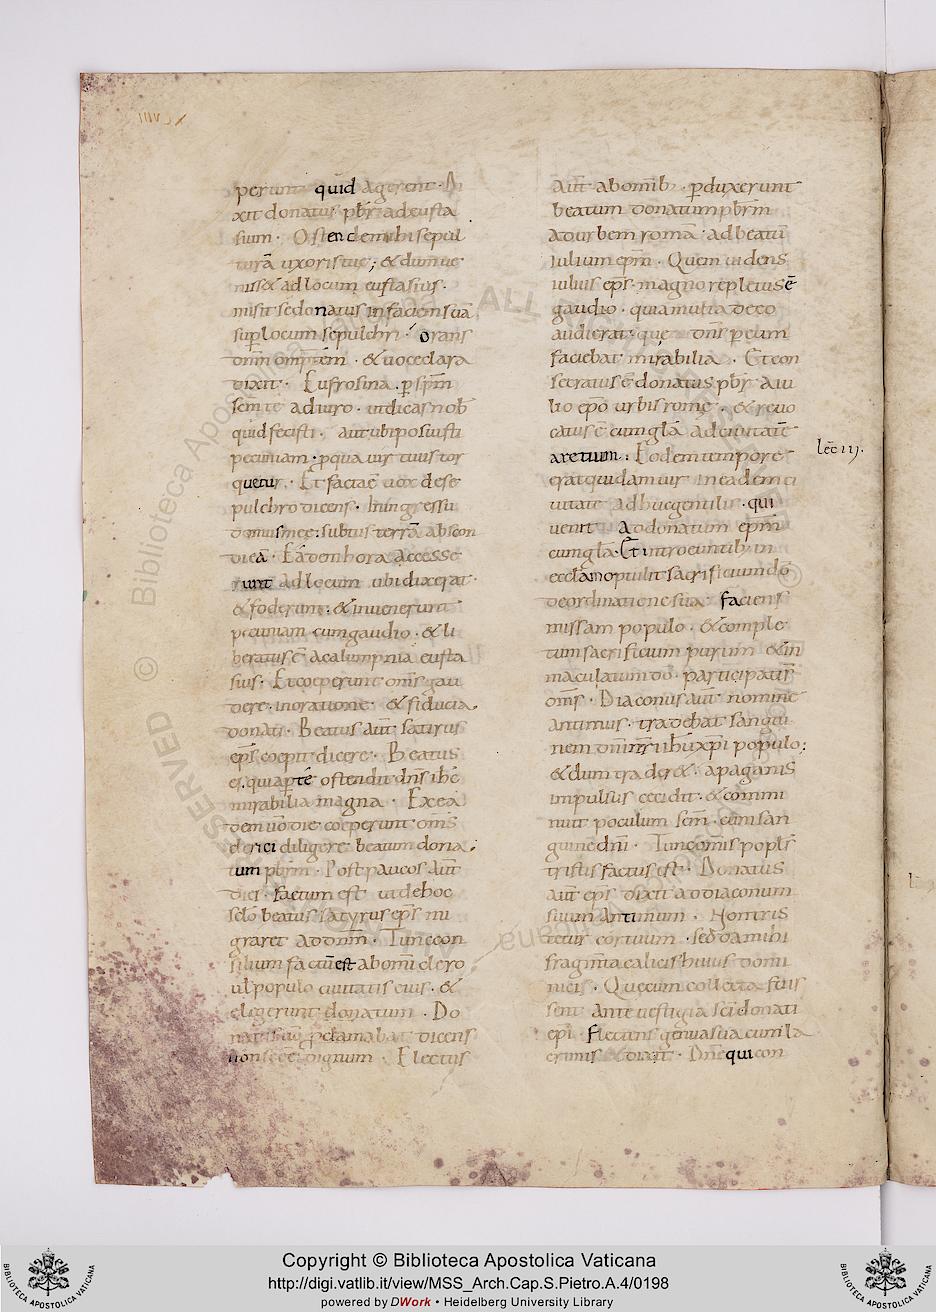 XCVIII
perunt quid agerent · Di
xit donatus pbr̄ ad eusta
sium · Ostende mihi sepul
turā uxoris tuę ; & dum ue
niss& ad locum eustasius ·
misit se donatus in faciem suā
sup̄ locum sepulchri · orans
dn̄m omp̄tem · & uoce clara
dixit · Eufrosina · p sp̄m
sc̄m te adiuro · ut dicas nob̄
quid fecisti · aut ubi posuisti
pecuniam · p qua uir tuus tor
quetur · Et factaē uox de se
pulchro dicens · In ingressu
domus meę : subtus terrā abscon
di eā · Eadem hora accesse
runt ad locum ubi dixerat ·
& foderunt : & inuenerunt
pecuniam cum gaudio · & li
beratus ē a calumpnia eusta
sius · Et coeperunt om̄s gau
dere in oratione · & fiducia
donati · Beatus aūt satirus
ep̄s coepit dicere · Beatus
es · quia p te ostendit dn̄s ihc̄
mirabilia magna · Ex ea
dem uo die coeperunt om̄s
clerici diligere beatum dona
tum pbr̄m · Post paucos aūt
dies · factum est ut de hoc
sclo beatus satyrus ep̄s mi
graret ad dn̄m · Tunc con
silium factū est ab omi clero
ul populo ciuitatis eius · &
elegerunt donatum · Do
natus uo p̄clamabat dicens
non se ee dignum · Electus
aūt ab omib · pduxerunt
beatum donatum pbr̄m
ad urbem romā · ad beatū
iulium ep̄m · Quem uidens
iulius ep̄s · magno repletus ē
gaudio · quia multa de eo
audierat · que dn̄s p eum
faciebat mirabilia · Et con
secratus ē donatus pbr̄ a iu
lio ep̄o urbis rome · & reuo
catus ē cum gla ad ciuitatē
aretium : Eodem tempore
erat quidam uir in eadem ci
uitate adhuc gentilis · qui
uenit ad donatum ep̄m
cum gla · Et introeuntib in
eccłam optulit sacrificium dō
de ordinatione sua faciens
missam populo · & comple
tum sacrificium purum & in
maculatum dō · participatis
om̄s · Diaconus aūt nomine
antimus · tradebat sangui
nem dn̄i nr̄i ihu xpi populo :
& dum trader& · a paganis
impulsus cecidit · & commi
nuit poculum sc̄m · cum san
guine dn̄i · Tunc om̄is popls
tristis factus est · Donatus
aūt ep̄s dixit ad diaconum
suum antimum · Non tris
tetur cor tuum · sed da mihi
fragm̄ta calicis huius domi
nicis · Quę cum collecta fuis
sent ante uestigia sc̄i donati
epi · flectens genua sua cum la
crimis & dixit · Dn̄e qui con
lec̄ iij.
Copyright © Biblioteca Apostolica Vaticana
http://digi.vatlib.it/view/MSS_Arch.Cap.S.Pietro.A.4/0198
powered by DWork • Heidelberg University Library
BIBLIOTECA APOSTOLICA VATICANA
BIBLIOTECA APOSTOLICA VATICANA